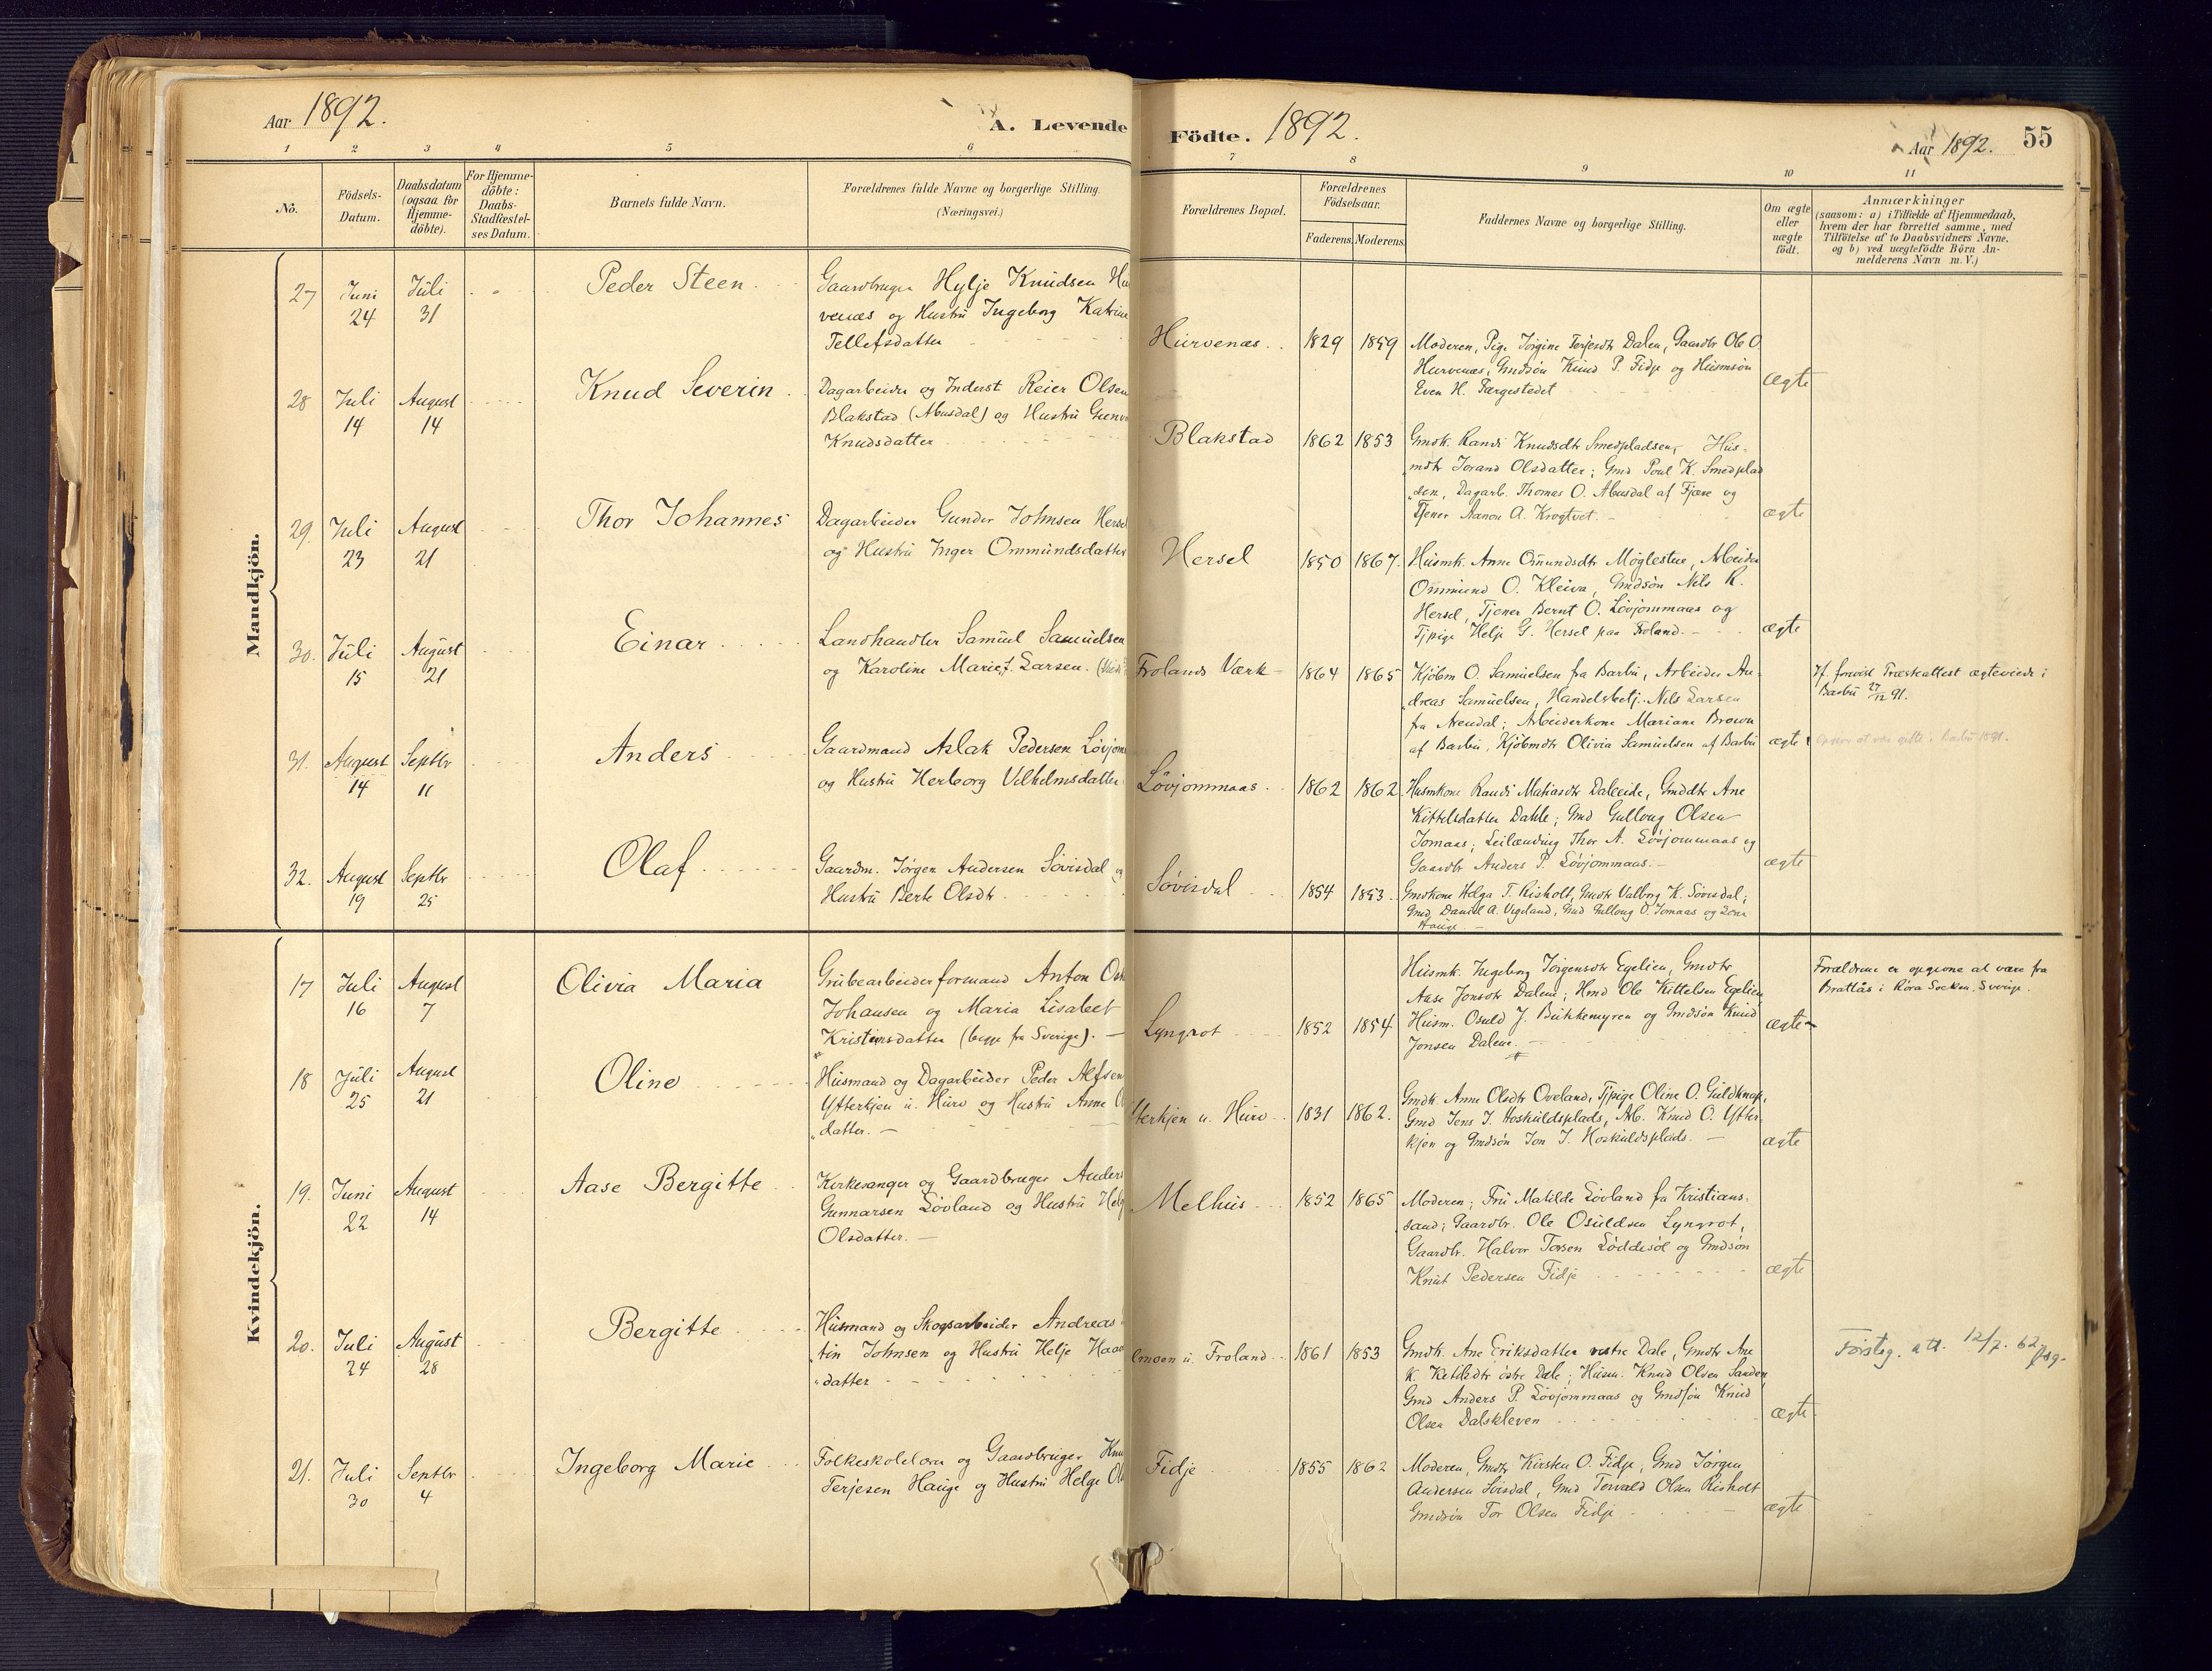 Aar 1892.
A. Levende
1 2 3 4 5 6
No.
Födsels-
Datum.
Daabsdatum
(ogsaa for
Hjemme-
döbte).
For Hjemme-
döbte:
Daabs-
Stadfæstel-
ses Datum.
Barnets fulde Navn.
Forældrenes fulde Navne og borgerlige Stilling.
(Næringsvei.)
Mandkjön.
27 Juni 24 Juli 31 Peder Steen
Gaardbruger Hylje Knudsen Hu
venæs og Hustru Ingeborg Katrine
Tellefsdatter
28 Juli 14 August 14 Knud Severin
Dagarbeider og Inderst Reier Olsen
Blakstad (Abusdal) og Hustru
Knudsdatter
29. Juli 23 August 21 Thor Johannes
Dagarbeider Gunder Johnsen
og Hustru Inger Ommundsdatter
30. Juli 15 August 21 Einar
Landhandler Samuel Samuelsen
og Karoline Marie f. Larsen.
31. August 14 Septbr 11 Anders
Gaardmand Aslak Pedersen
og Hustru Herborg Vilhelmsdatter
32. August 19 Septbr 25 Olaf
Gaardm. Jörgen Andersen Sövisdal og
Hustru Berte Olsdtr.
Kvindekjön.
17 Juli 16 August 7 Olivia Maria
Grubearbeiderformand Anton
Johansen og Maria Lisabeet
Kristiansdatter (begge fra Sverige). —
18 Juli 25 August 21 Oline
Husmand og Dagarbeider Peder Alfsen
Ytterkjen u. Hurv og Hustru Anne
datter. —
19. Juni 22 August 14 Aase Bergitte
Kirkesanger og Gaardbruger Anders
Gunnarsen Lövland og Hustru
Olsdatter. —
20. Juli 24 August 28 Bergitte
Husmand og Skogsarbeider Andreas
tin Johnsen og Hustru Helje
datter
21. Juli 30 Septbr 4 Ingeborg Marie
Folkeskolelærer og Gaardbruger
Terjesen Hauge og Hustru Helge
Födte. 1892.
Aar 1892. 55
7 8 9 10 11
Forældrenes Bopæl.
Forældrenes
Födselsaar.
Faderens. Moderens.
Faddernes Navne og borgerlige Stilling.
Om ægte
eller
uægte
födt.
Anmærkninger
(saasom: a) i Tilfælde af Hjemmedaab,
hvem der har forrettet samme, med
Tilföielse af to Daabsvidners Navne.
og b) ved uægtefödte Börn An-
melderens Navn m. V.)
Hurvenæs 1829 1859
Moderen, Pige Jörgine Terjesdtr Dalen, Gaardbr Ole O
Hurvenæs, Gmdsön Knud P. Fidje og Husmsön
Even H. Færgestedet
ægte
Blakstad 1862 1853
Gmdk. Randi Knudsdtr Smedpladsen, Hus-
mdtr Jorand Olsdatter; Gmd Poul K. Smedplad
sen, Dagarb. Thomas O. Abusdal af Fjære og
Tjener Aanon A. Krogtvet. —
ægte
Hersel 1850 1867.
Husmk. Anne Omundsdtr Moglestue, Arbeider
Ommund O. Kleiva, Gmdsön Nils R.
Hersel, Tjener Bernt O. Lövjommaas og
Tjpige Helje G. Hersel paa Froland.
ægte
Frolands Værk 1864 1865
Kjöbm O. Samuelsen fra Barbu, Arbeider An-
dreas Samuelsen, Handelsbetj. Nils Larsen
fra Arendal; Arbeiderkone Mariane Brown
af Barbu, Kjöbmdtr Olivia Samuelsen af Barbu
ægte
If. forevist Præsteattest ægteviede i
Barbu 27/12 91.
Lövjommaas 1862 1862.
Husmkone Randi Matiasdtr Daleeide, Gmddtr Ane
Kittelsdatter Dahle; Gmd Gullaug Olsen
Jomaas; Leilænding Thor A. Lövjommaas og
Gaardbr Anders P. Lövjommaas. —
ægte
Sövisdal 1854 1853.
Gmdkone Helga T. Risholt, Gmdtr Valborg K. Sövisdal;
Gmd Daniel A. Vegeland, Gmd Gullaug O. Jomaas og
Hauge —
Lyngrot 1852 1854
Husmk. Ingeborg Jörgensdtr Egelien, Gmdtr
Aase Jonsdtr Dalene; Hmd Ole Kittelsen Egelien
Husm. Osuld J. Bukkemyren og Gmdsön Knud
Jonsen Dalene. —
ægte
Forældrene er opgivne at være fra
Brattås i Röra Socken, Sverige.
terkjen u. Hurv 1831 1862.
Gmdk. Anne Olsdtr Oveland, Tjpige Oline O. Guldknap,
Gmd Jens J. Hoskuldsplads, Arb. Knud O. Ytter-
kjen og Gmdsön Jon J. Hoskuldsplads. —
ægte
Melhus 1852 1865
Moderen; Fru Matilde Lövland fra Kristians-
sand; Gaardbr. Ole Osuldsen Lyngrot,
Gaardbr. Halvor Torsen Löddesöl og Gmdsön
Knut Pedersen Fidje
ægte
moen u. Froland 1861 1853
Gmdk. Ane Eriksdatter vestre Dale, Gmdtr Ane
K. Ketilsdtr östre Dale; Husm. Knud Olsen Sanden
Gmd Anders P. Lövjommaas og Gmdsön Knud
Olsen Dalskleven
ægte
12/7. 62
Fidje 1855 1862
Moderen, Gmdtr Kirsten O. Fidje, Gmd Jörgen
Andersen Sövisdal, Gmd Torvald Olsen Risholt
Gmdsön Tor Olsen Fidje
ægte